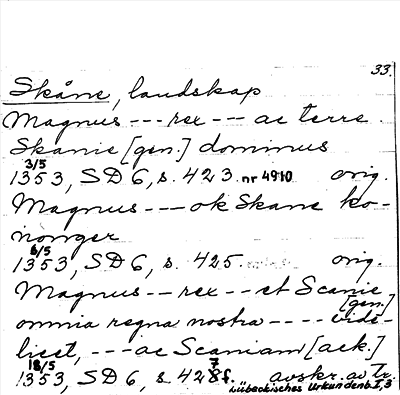 33.
Skåne, landskap
Magnus --- rex --- ac terre
Skanie [gen.] dominus
3/5
1353, SD 6, s. 423. nr 4910 orig.
Magnus --- ok Skane ko-
nonger
6/5
1353, SD 6, s. 425. orig.
Magnus -- rex -- et Scanie
[gen.]
omnia regna nostra ---- vide-
licet, --- ac Scaniam [ack.]
18/5 7
1353, SD 6, s. 428f. avskr. av tr.
Lübeckisches Urkundenb. I, 3